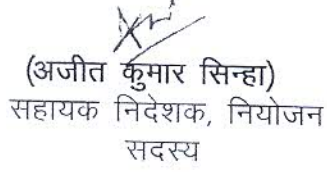 (अजीत कुमार सिन्हा)
सहायक निदेशक, नियोजन
सदस्य